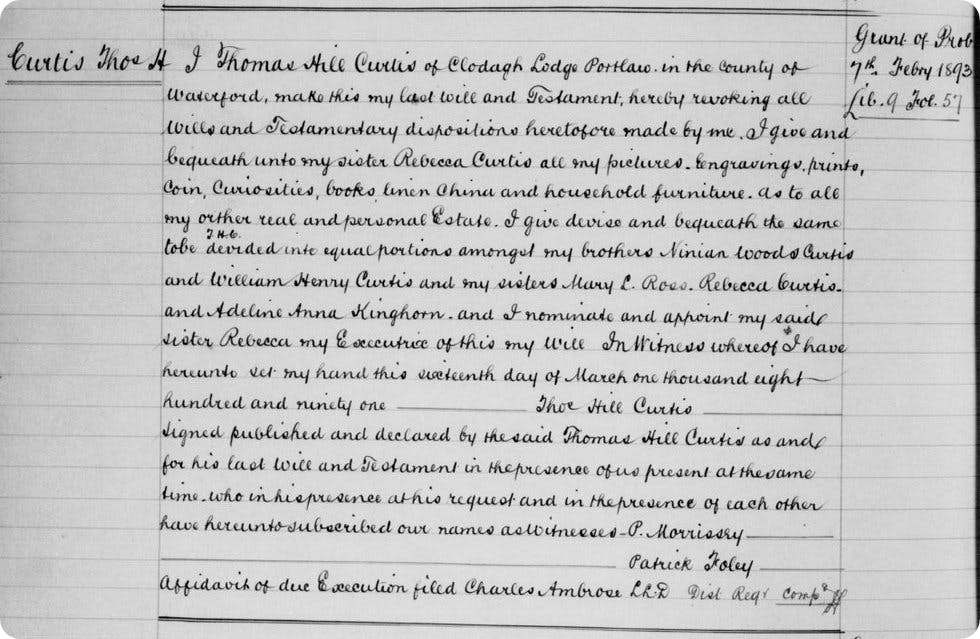 Curtis Thos H
Grant of Prob
7th Febry 1893
Lib. 9 Fol. 57
I Thomas Hill Curtis of Clodagh Lodge Portlaw. in the County of
Waterford, make this my last will and Testament, hereby revoking all
Wills and Testamentary dispositions heretofore made by me. I give and
bequeath unto my sister Rebecca Curtis all my pictures. Engravings, prints,
Coin, Curiosities, books, linen China and household furniture. as to all
my orther real and personal Estate. I give devise and bequeath the same
T.H.C.
tobe devided into equal portions amongst my brothers Ninian Woods Curtis
and William Henry Curtis and my sisters Mary L. Ross. Rebecca Curtis.
and Adeline Anna Kinghorn. and I nominate and appoint my said
sister Rebecca my Executrix of this my Will In Witness whereof I have
hereunto set my hand this sixteenth day of March one thousand eight
hundred and ninety one Thos Hill Curtis
Signed published and declared by the said Thomas Hill Curtis as and
for his last Will and Testament in the presence of us present at the same
time. who in his presence at his request and in the presence of each other
have hereunto subscribed our names as Witnesses - P. Morrissey
Patrick Foley
Affidavit of due Execution filed Charles Ambrose LL.D Dist Regr Compd